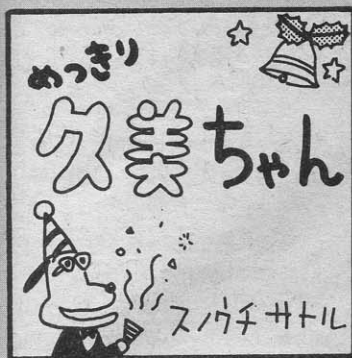 めっきり
久美ちゃん
スノウチサトル